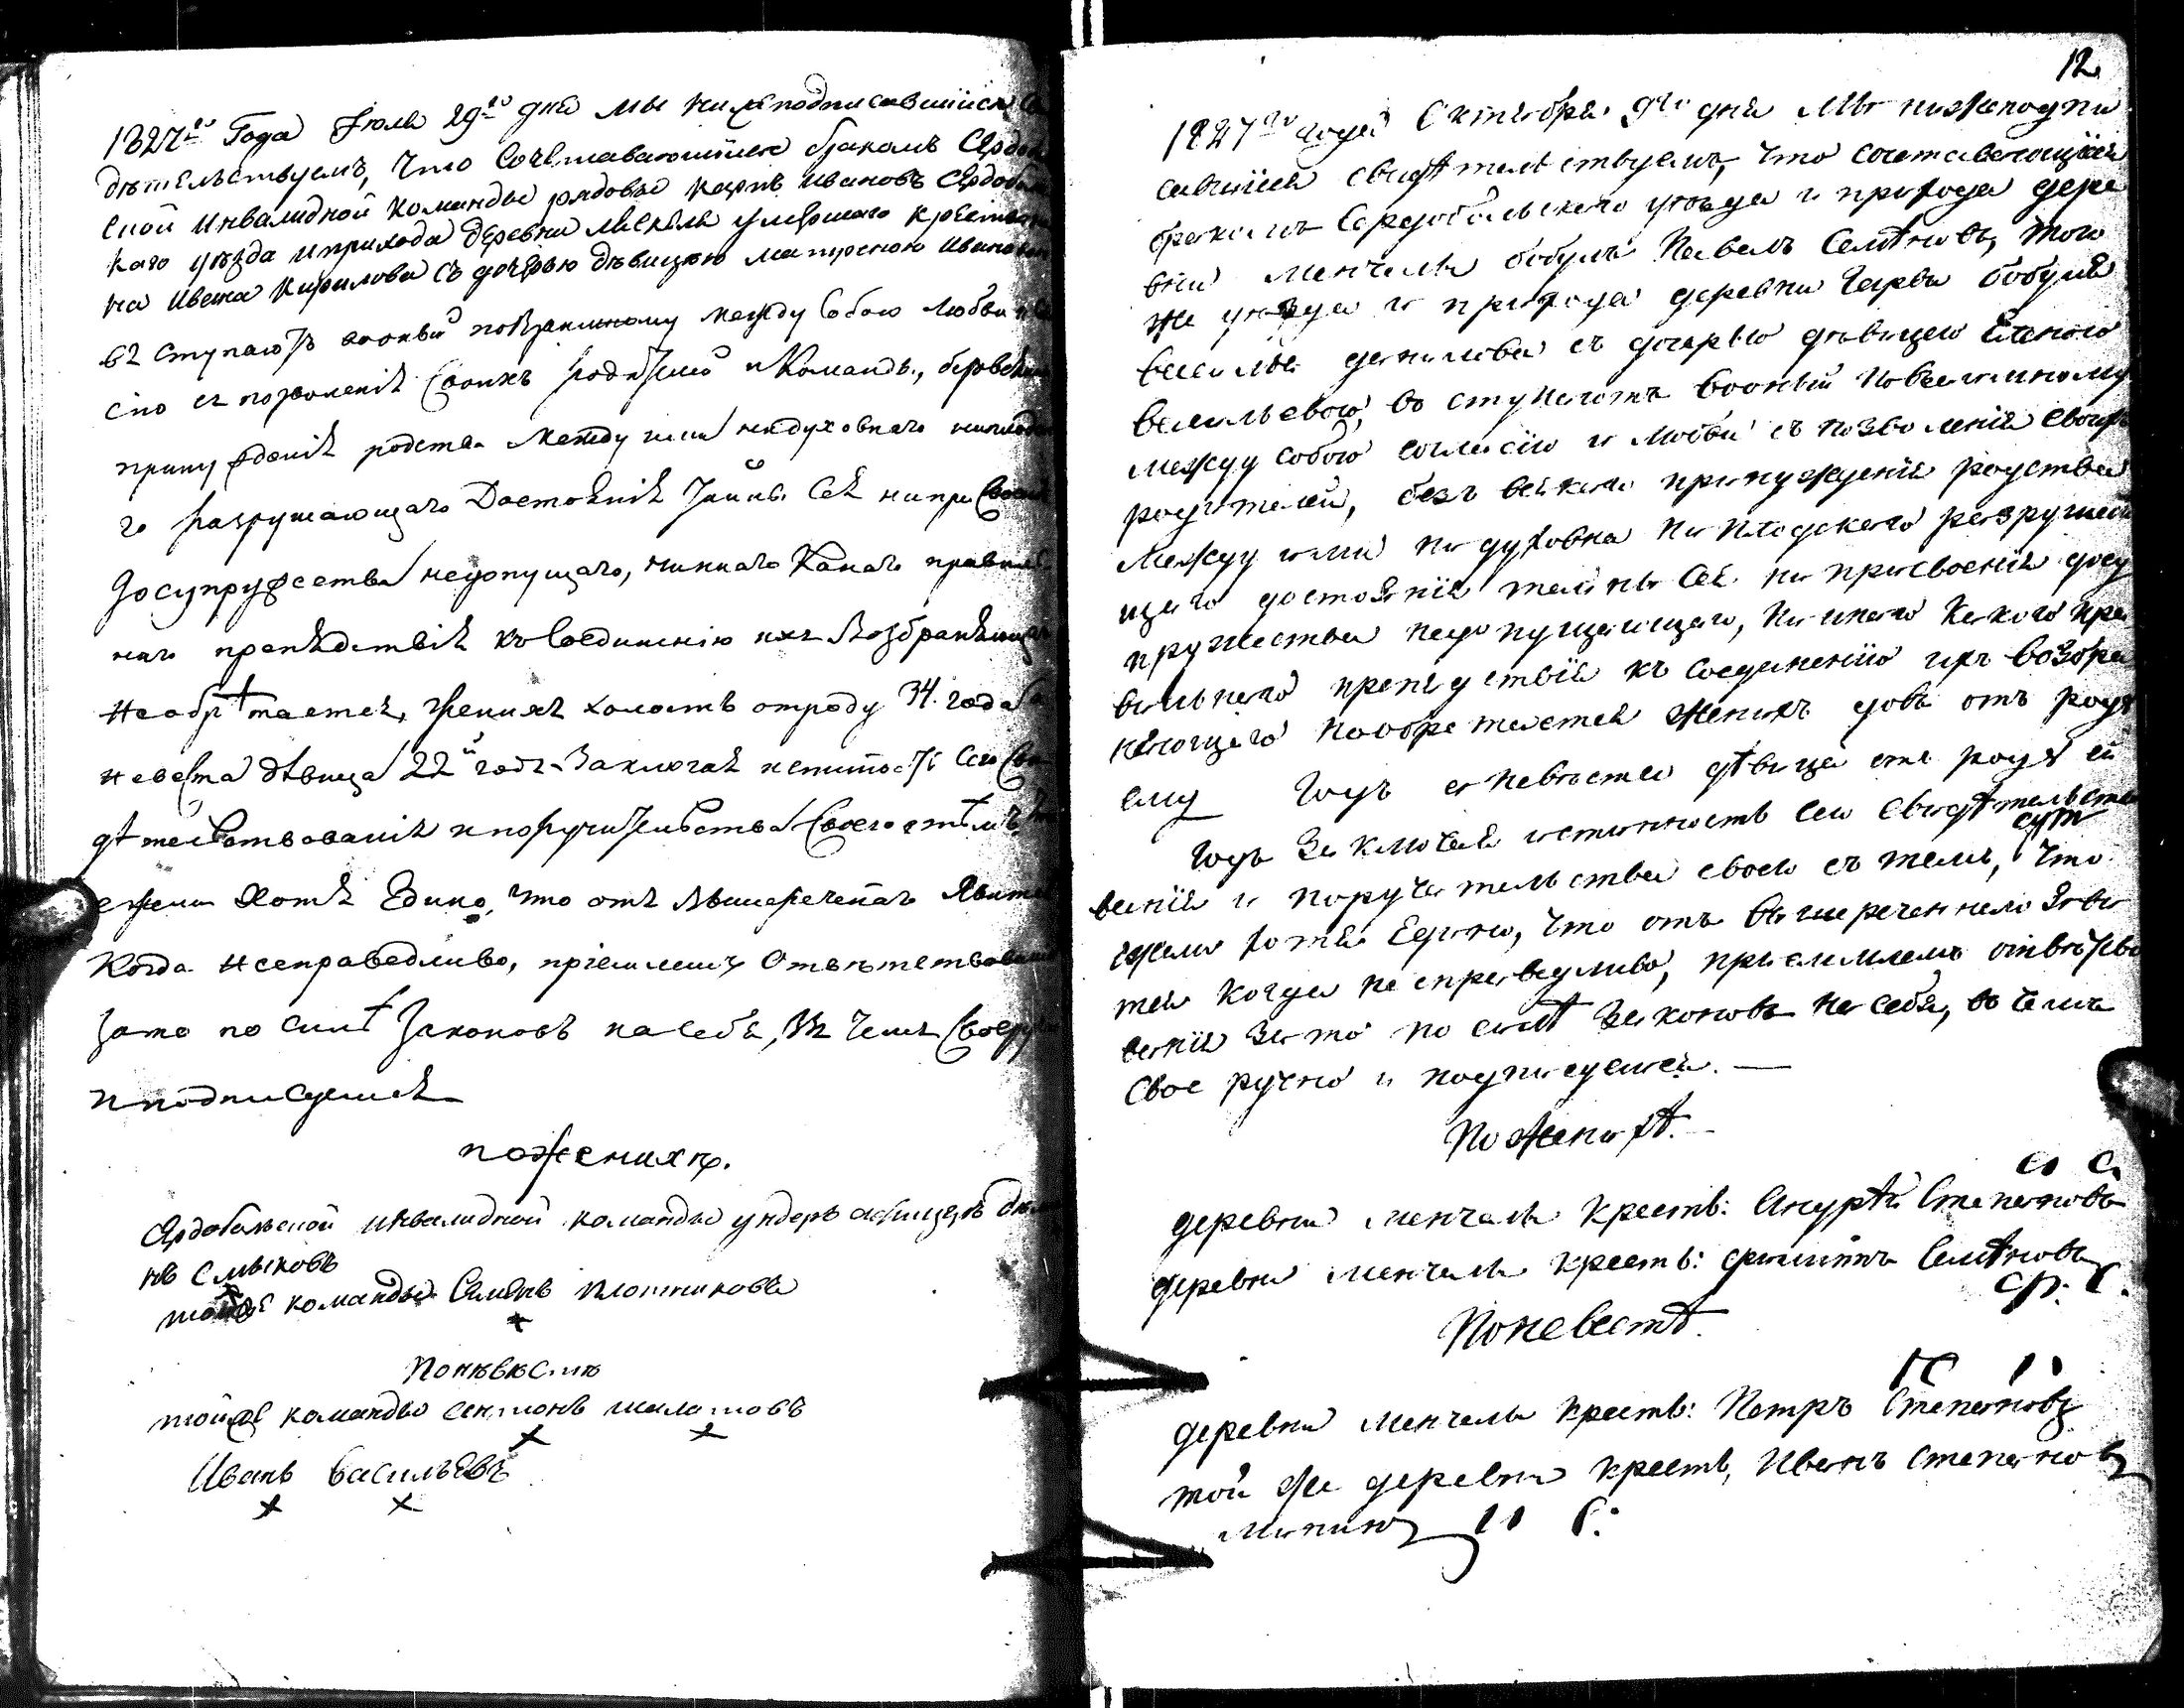 1827го Года Июля 29го дня мы нижеподписавшиися Сви
дѣтельствуемъ, что Сочетавающиися бракомъ Сердоболь
ской Инвалидной команды рядовые карпъ ивановъ Сердобольс
каго уѣзда и прихода деревни крестьяни
на ивана кирилова съ дочерью дѣвицею матреною ивановою
въ ступаютъ вооный повзаимному между Собою любви
сію съ позволенія Своихъ родителей и Команды, безъ всякаго
принужденія родства между ими недуховнаго ниплодска
го разрушающаго Достоянія Тайны Сея ниприсвоенія
Досупружества недопущаго, никакаго Канаго правиль
наго препядствія къ Соединенію ихъ Возбраняющаго
необрѣтается, женихъ холостъ отроду 34. года а
невеста дѣвица 22й годъ. Заключая истинность Сего Сви
дѣтельствованія и поручительства Своего стѣмъ, что
ежели Хотя Едино, что отъ Вышереченнаго Явится
Когда несправедливо, пріемлемъ Отвѣтствованія
Зато по силѣ Законовъ на Себя, въ чемъ Своеручно
и подписуемся
по женихѣ.
Сердобольской инвалидной команды ундеръ офицеръ
нъ Смыковъ
тойже команды Семенъ плотниковъ
По невѣстѣ
тойже команды антонъ шалатовъ
Иванъ васильевъ
12.
1827го года Октября 9го дня Мы нижеподпи
савшиися свидѣтельствуемъ, что сочетавающиися
бракомъ Сердобольскаго уѣзда и прихода дере
вни Менчели бобуль Павелъ Семѣновъ, того
же уѣзда и прихода деревни бобуля
василья данилова съ дочерью дѣвицею Еленою
васильевою, въ ступаютъ вооный Повзаимному
между собою согласію и любви съ позволенія своихъ
родителей, безъ всякаго принужденія родства
между ими ни духовна ни плодскаго разрушаю
щаго достоянія тайны Сея ни присвоенія досу
пружества недопущающаго, ни инаго какого пра
вильнаго препядствія къ соединенію ихъ возбра
няющаго необретается женихъ вдовъ отъ роду
ему годъ а невѣста дѣвица отъ роду ей
годъ Заключая истинность сего свидѣтельство
ванія и поручительства своего съ тѣмъ, что
ежели хотя Едино, что отъ вышереченнаго яви
тся когда несправедливо, пріемлемъ отвѣтство
ванія зато по силѣ законовъ на себя, въ чемъ
свое ручно и подписуемся. —
По женихѣ.
деревни менчели крестъ: Андрѣй Степановъ
деревни менчели крестъ: филипъ Семѣновъ
Ф. С.
По невестѣ.
деревни менчели крестъ: Петръ Степановъ
той же деревни крестъ, Иванъ степановъ